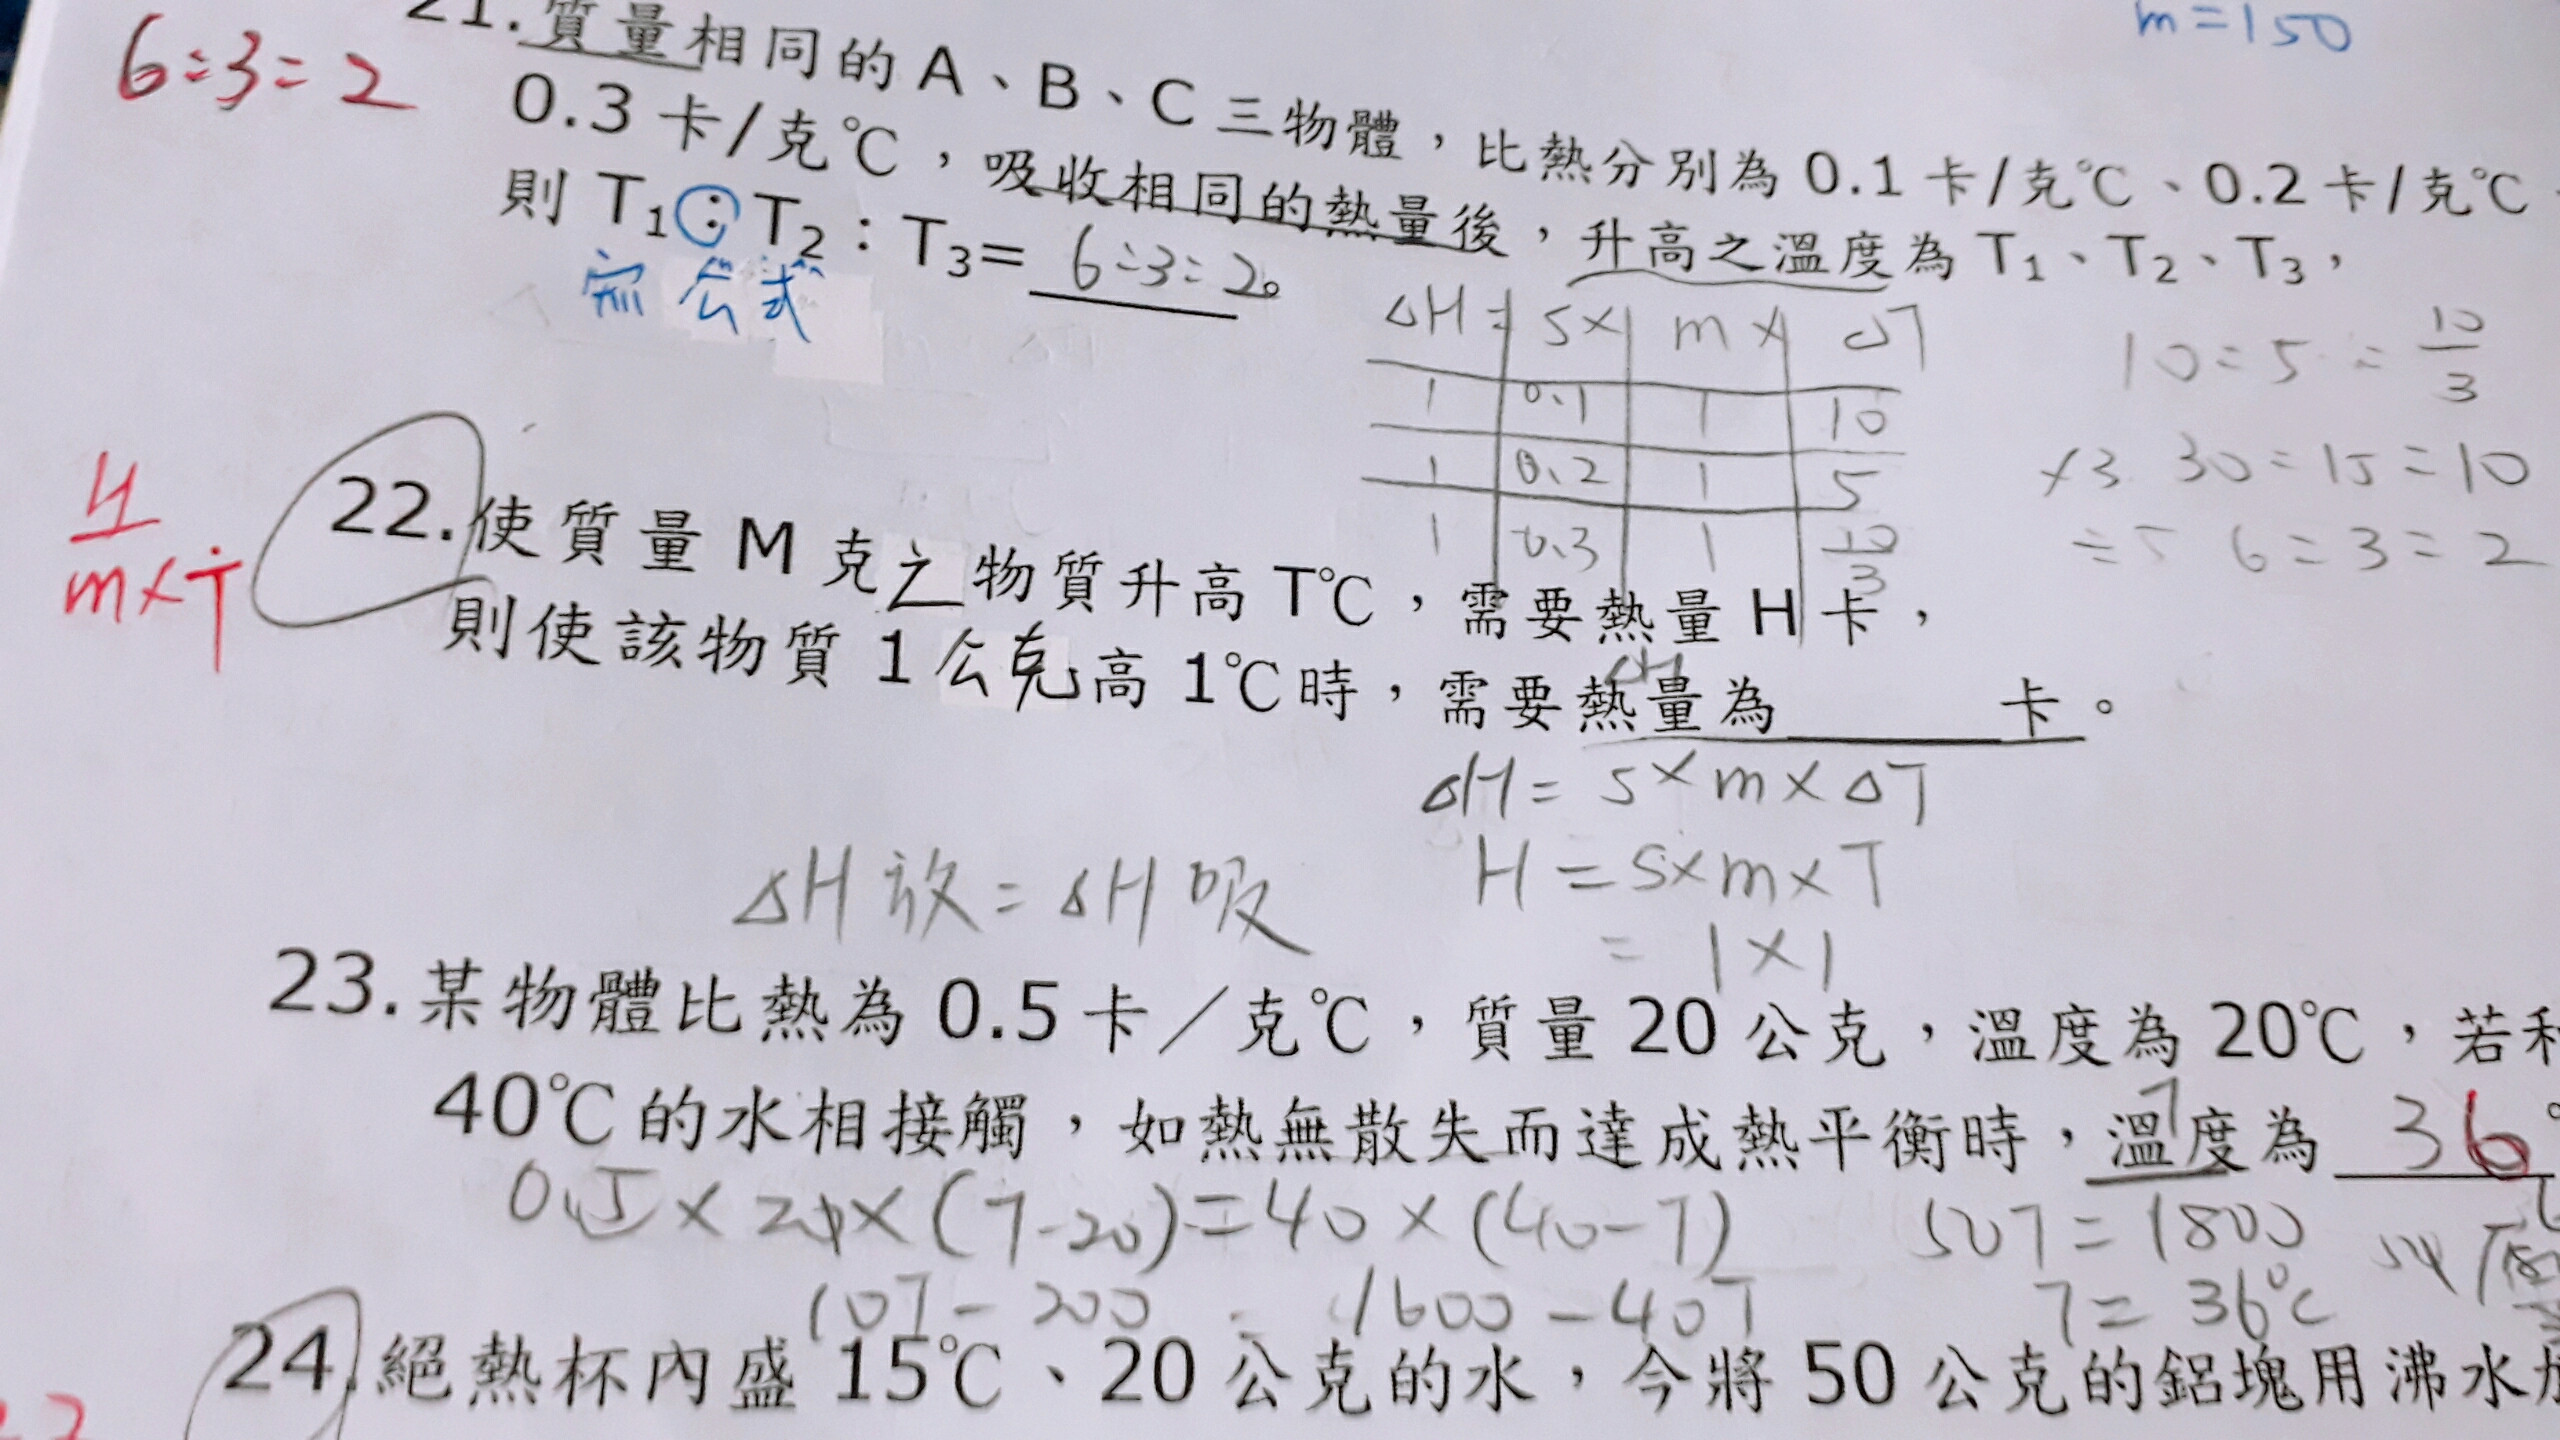 m=150
6:3:2
21.質量相同的A、B、C三物體，比熱分別為0.1卡/克℃、0.2卡/克℃、
0.3卡/克℃，吸收相同的熱量後，升高之溫度為T1、T2、T3，
則T1：T2：T3= 6:3:2。
公式
ΔH= S× m× ΔT
1 0.1 1 10
1 0.2 1 5
1 0.3 1 10/3
10:5:10/3
×3 30:15:10
÷5 6:3:2
H/m×T
22.使質量M克之物質升高T℃，需要熱量H卡，
ΔH
則使該物質1公克高1℃時，需要熱量為 卡。
ΔH=S×m×ΔT
H=S×m×T
=1×1
ΔH放=ΔH吸
23.某物體比熱為0.5卡／克℃，質量20公克，溫度為20℃，若利
T
40℃的水相接觸，如熱無散失而達成熱平衡時，溫度為 36
0.5×20×(T-20)=40×(40-T)
10T-200=1600-40T
50T=1800
T=36℃
24.絕熱杯內盛15℃、20公克的水，今將50公克的鋁塊用沸水加